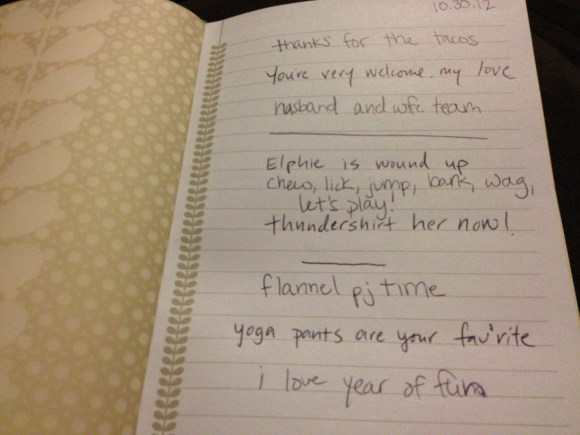 10.30.12
thanks for the tacos
You're very welcome, my love
husband and wife team
Elphie is wound up
chew, lick, jump, bark, wag,
let's play!
thundershirt her now!
flannel pj time
yoga pants are your fav'rite
i love year of fun